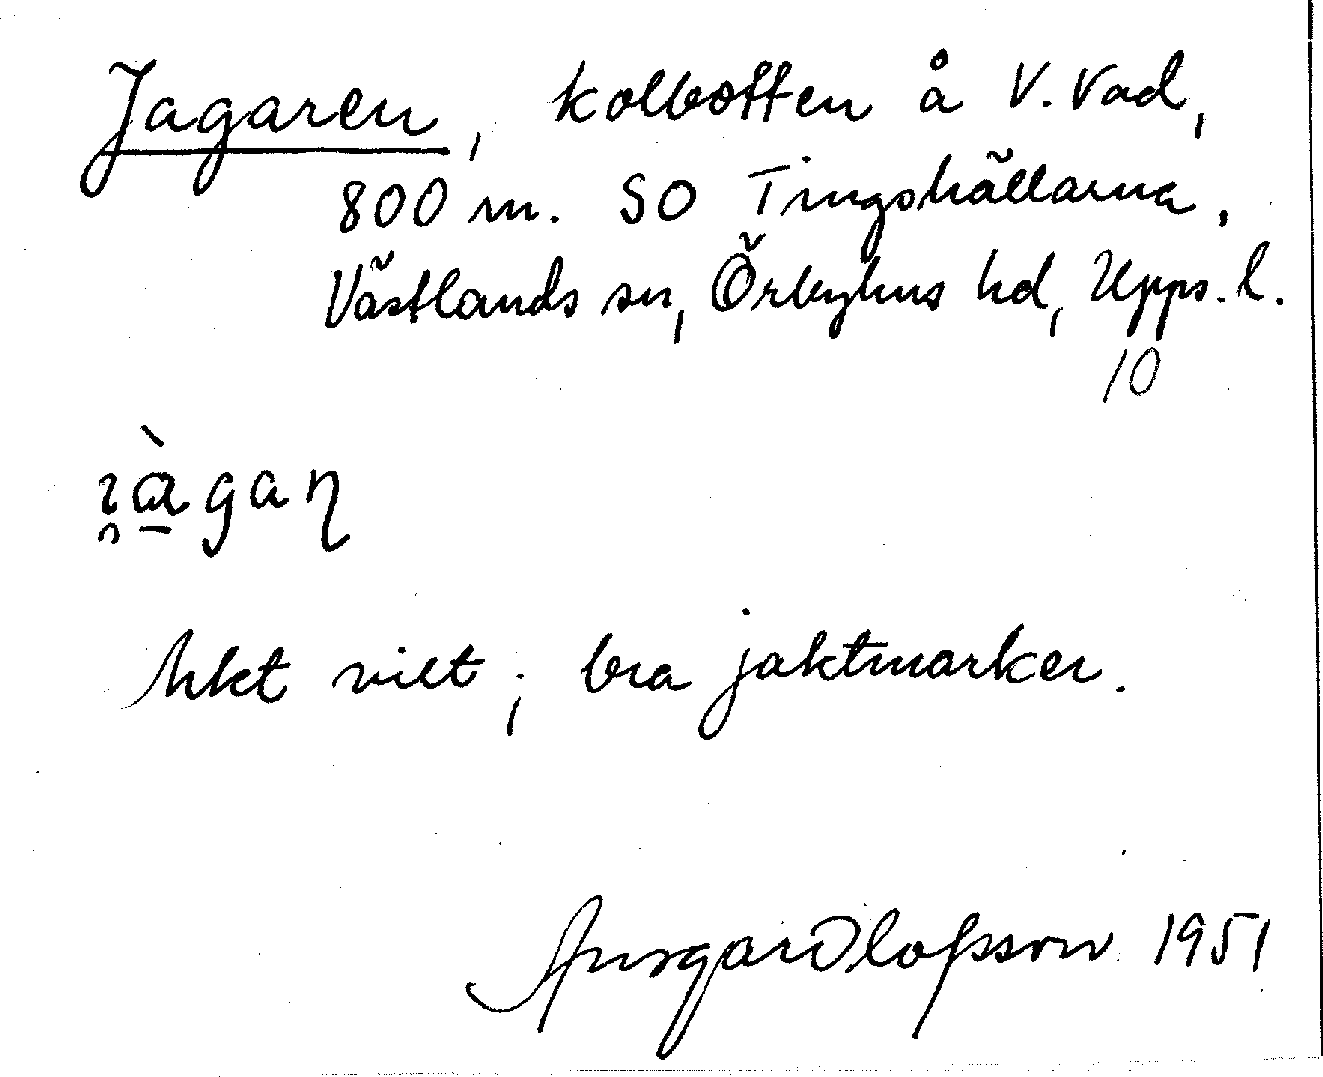 Jagaren, kolbotten å V. Vad,
800 m. SO Tingshällarna,
Västlands sn, Örbyhus hd, Upps. l.
10
ı̯à̱gaɳ
vilt; bra jaktmarker.
Ansgar Olofsson 1951